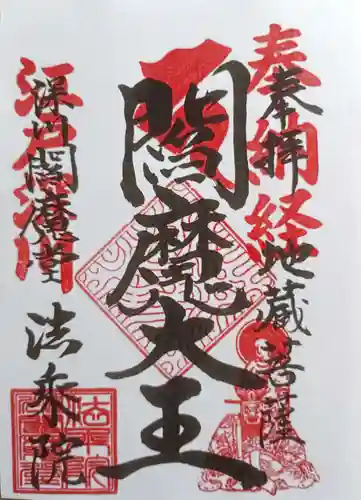 奉拝
地蔵菩薩
奉納経
閻魔大王
深川閻魔堂
法乗院